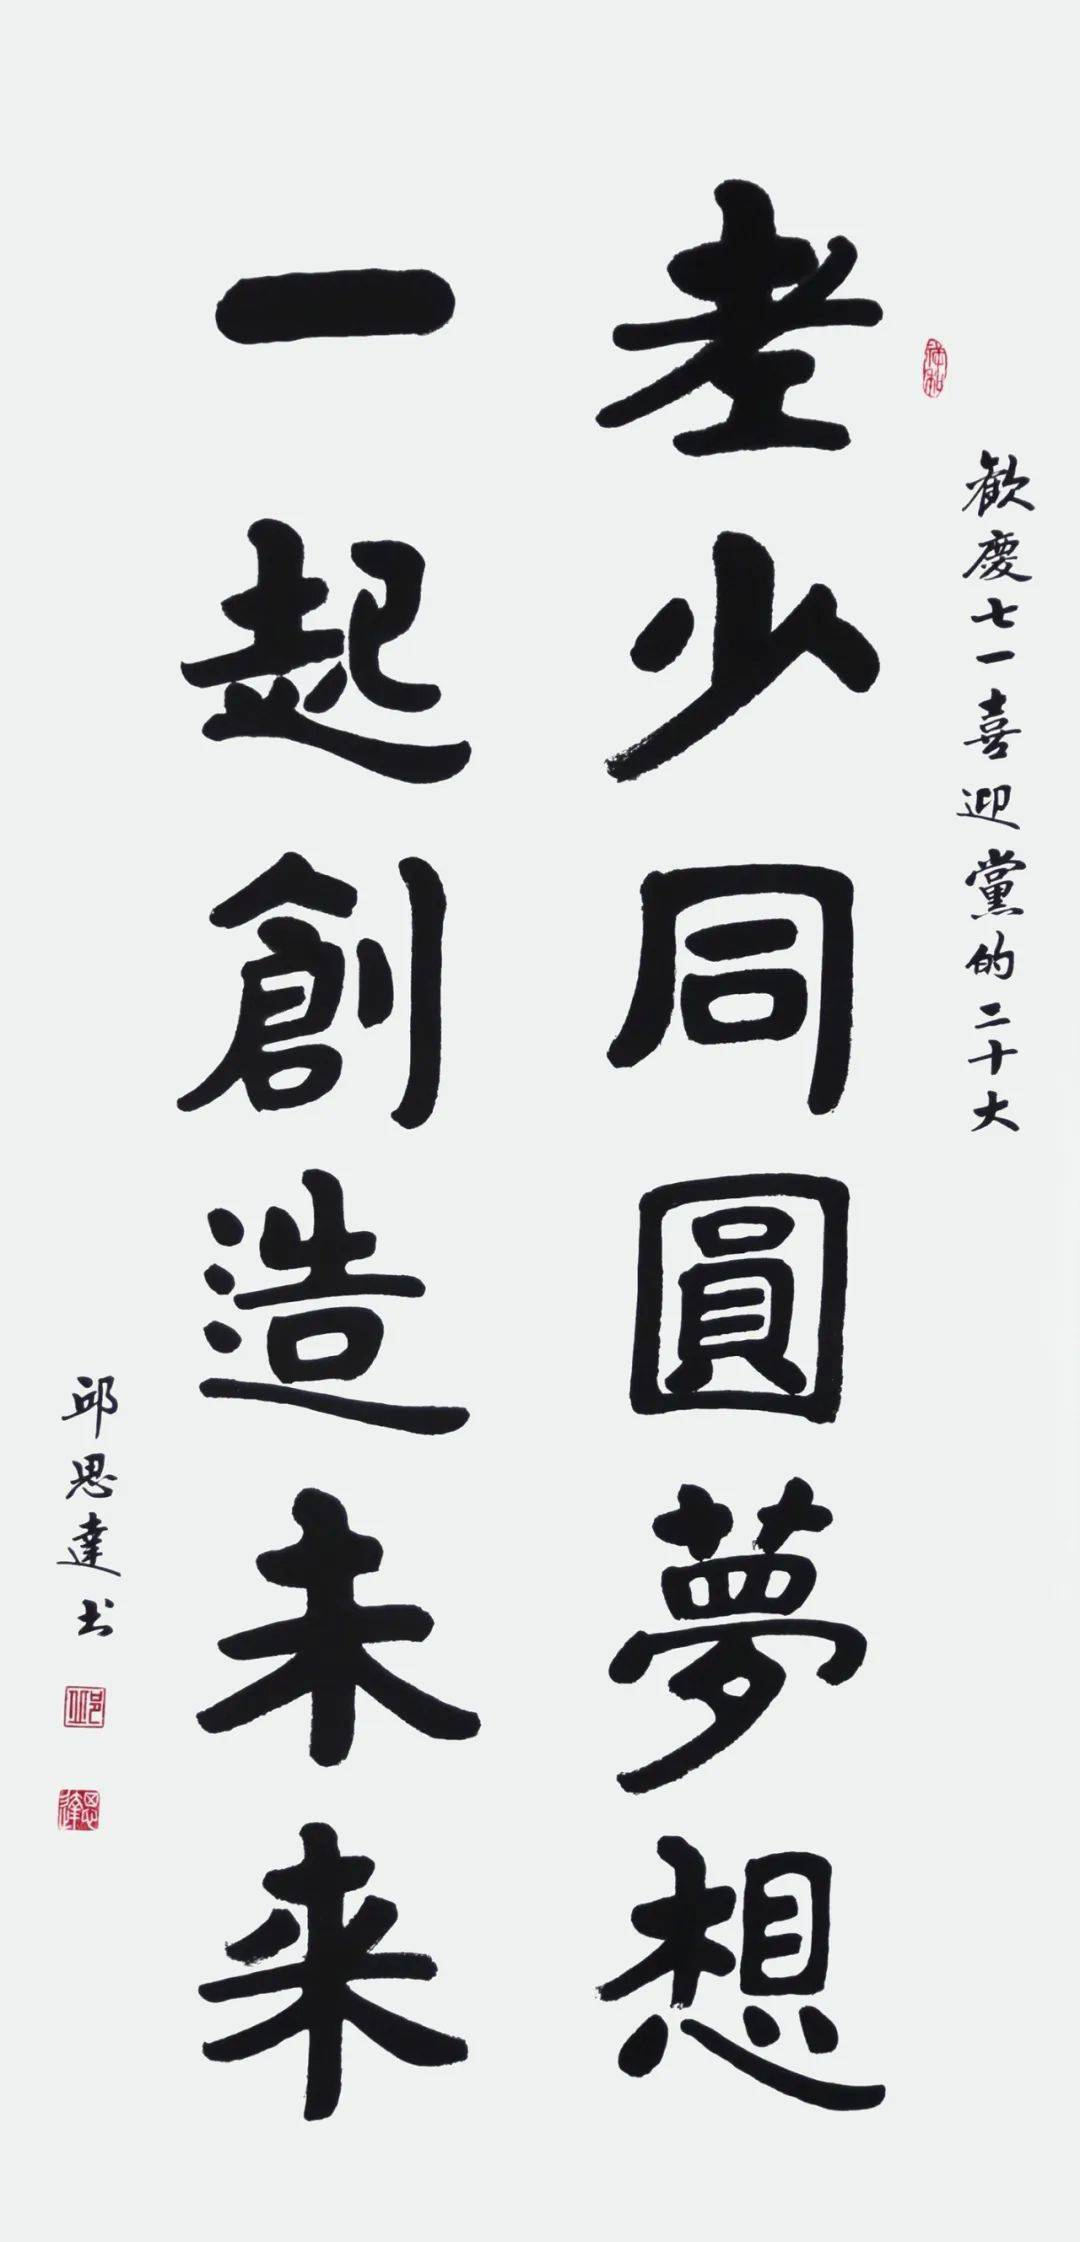 歡慶七一喜迎黨的二十大
老少同圓夢想
一起創造未来
邱思達书
邱
思達